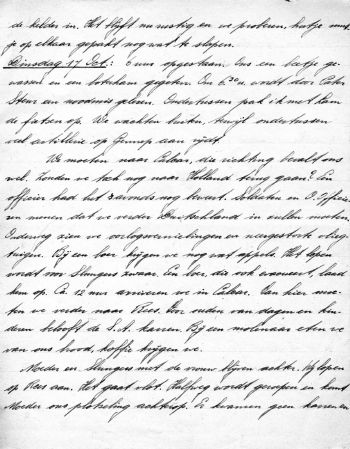 de kelder in. Het blijft nu rustig en we proberen, hutje mut-
je op elkaar gepakt nog wat te slapen.
Dinsdag 17 Oct.: 6 uur opgestaan. Ons een beetje ge-
wassen en een boterham gegeten. Om 6.30 u. wordt door Pater
Steur en noodmis gelezen. Ondertussen pak ik met Ham
de fietsen op. We wachten buiten, terwijl ondertussen
veel artillerie op Gennep aan rijdt.
We moeten naar Calcar, die richting bevalt ons
wel. Zouden we toch nog naar Holland terug gaan? Een
officier had het 's avonds nog beweert. Soldaten en O. Officie-
ren menen dat we verder Duitschland in zullen moeten.
Onderweg zien we oorlogsvernielingen en neergestorte vlieg-
tuigen. Bij een boer krijgen we nog wat appels. Het lopen
wordt voor Slungers zwaar. Een boer, die ook evacueert, laad
hem op. Ca. 12 uur arriveren we in Calcar. Van hier moe-
ten we verder naar Rees. Voor ouden van dagen en kin-
deren belooft de S.A. karren. Bij een molenaar eten we
van ons brood, koffie krijgen we.
Moeder en Slungers met de vrouw blijven achter. Wij lopen
op Rees aan. Het gaat vlot. Halfweg wordt geroepen en komt
Moeder ons plotseling achterop. Er kwamen geen karren en